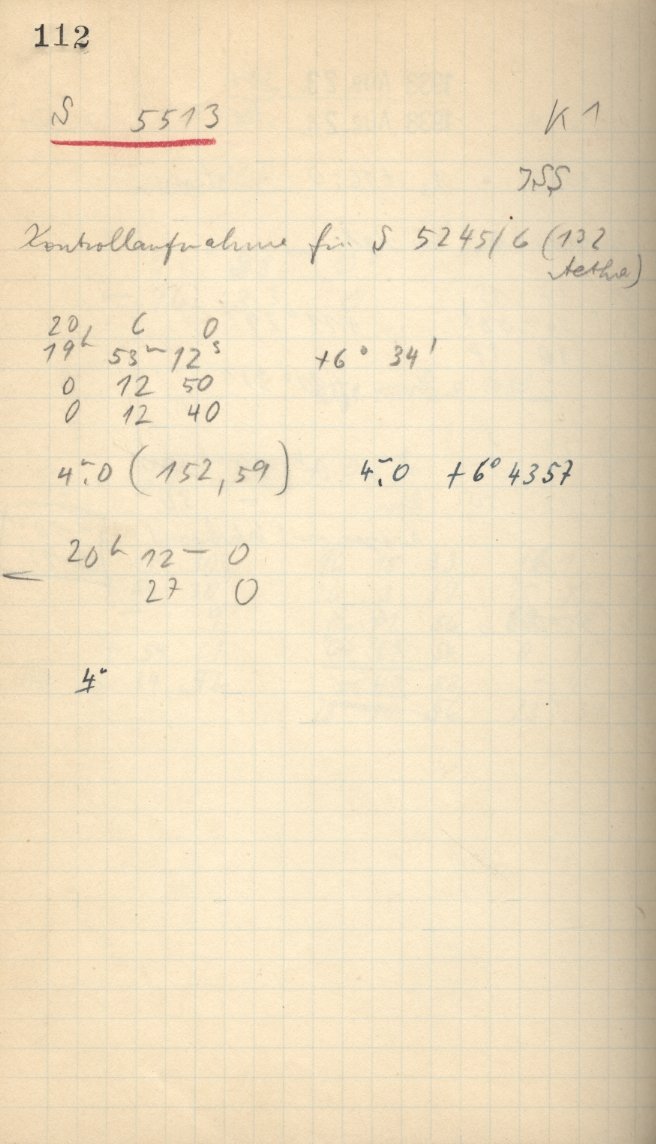 112
S 5513 K 1
JSS
Kontrollaufnahme für S 5245/6 (132
Aethra)
20 6 0
19h 53m 12s +6° 34'
0 12 50
0 12 40
4m.0 (152,59) 4m.0 +6° 4357
20h 12m 0
27 0
4m